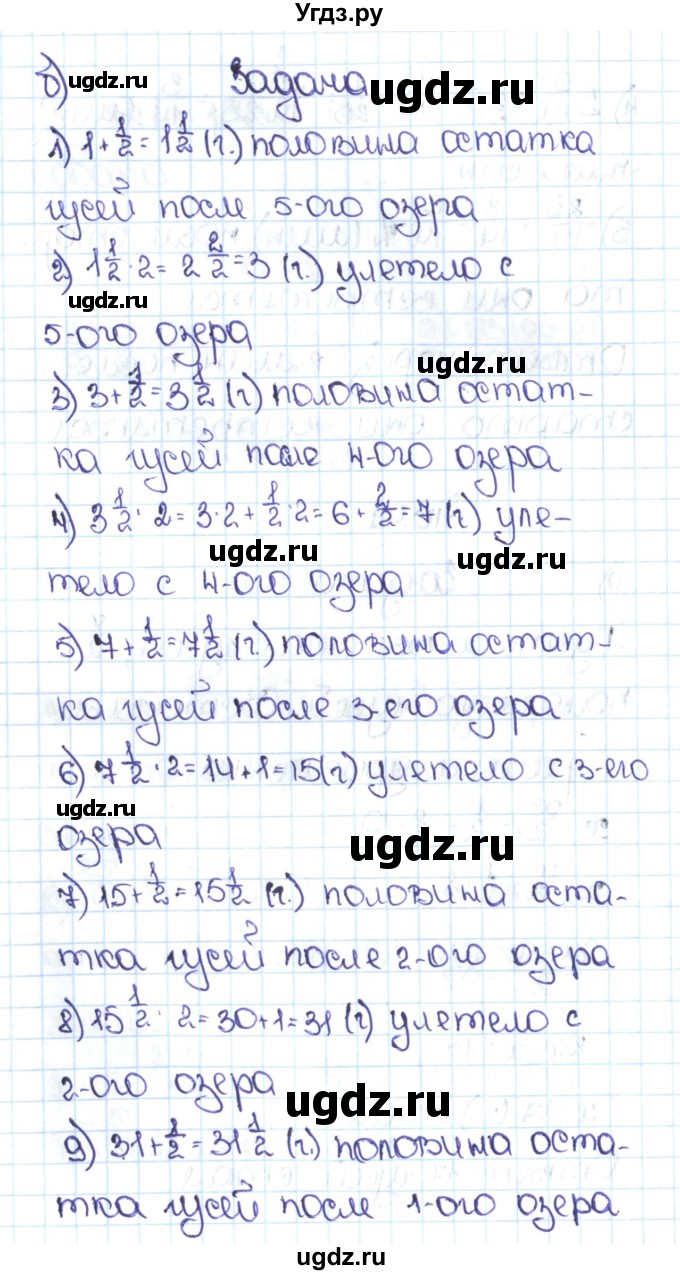 Угдз.ру
б) ugdz.ru Задача
ugdz.ru
1) 1 + 1/2 = 1 1/2 (г.) половина остатка
ugdz.ru
гусей после 5-ого озера
2) 1 1/2 · 2 = 2 2/2 = 3 (г.) улетело с
ugdz.ru
5-ого озера
ugdz.ru
3) 3 + 1/2 = 3 1/2 (г) половина остат-
ка гусей после 4-ого озера
4) 3 1/2 · 2 = 3·2 + 1/2 · 2 = 6 + 2/2 = 7 (г) уле-
ugdz.ru ugdz.ru
тело с 4-ого озера
ugdz.ru
5) 7 + 1/2 = 7 1/2 (г.) половина остат-
ка гусей после 3-его озера
6) 7 1/2 · 2 = 14 + 1 = 15 (г) улетело с 3-его
ugdz.ru
озера
ugdz.ru
7) 15 + 1/2 = 15 1/2 (г.) половина оста-
тка гусей после 2-ого озера
8) 15 1/2 · 2 = 30 + 1 = 31 (г) улетело с
2-ого озера
ugdz.ru
9) 31 + 1/2 = 31 1/2 (г.) половина оста-
тка гусей после 1-ого озера
ugdz.ru